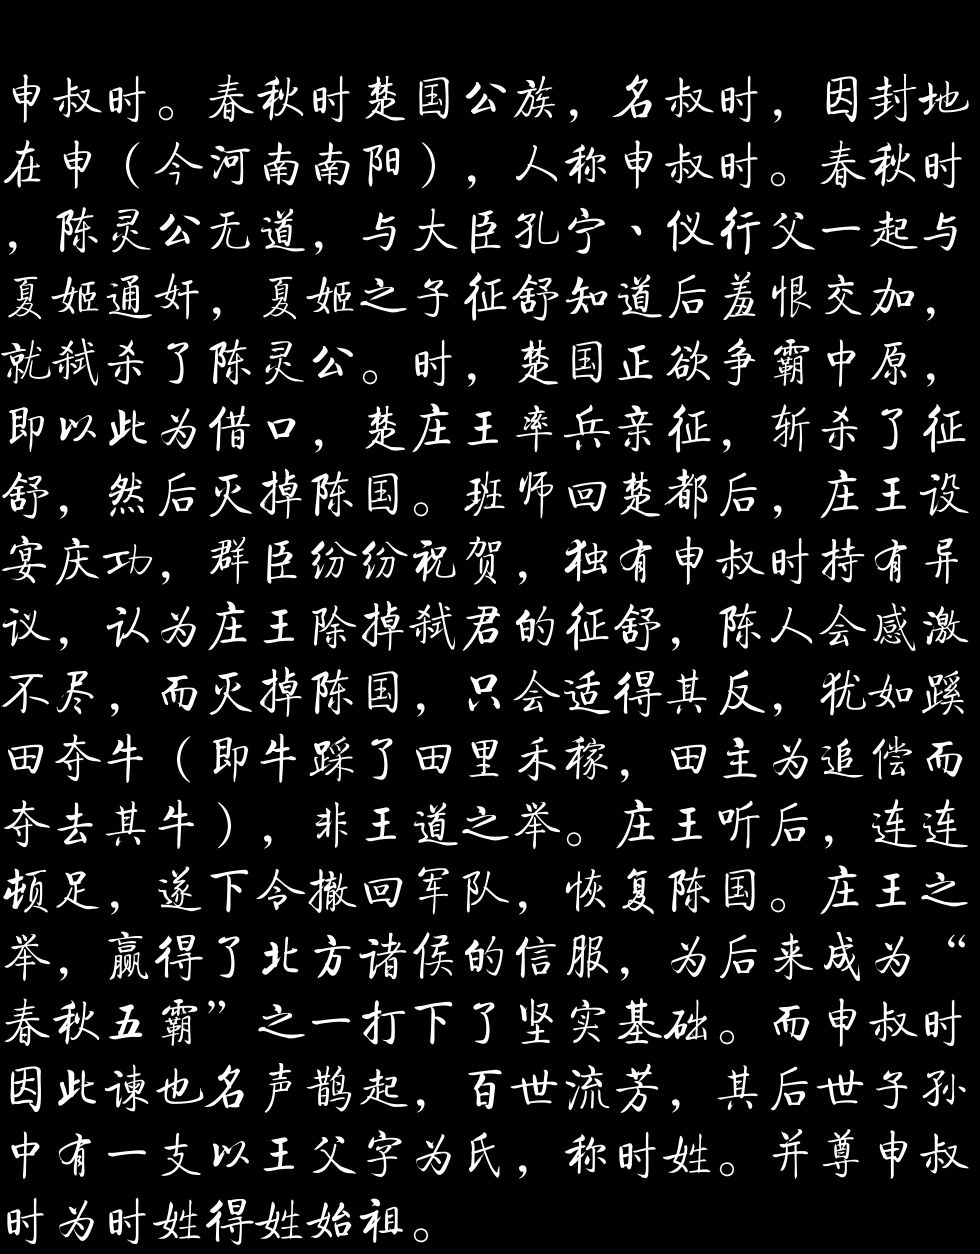 申叔时。春秋时楚国公族，名叔时，因封地
在申（今河南南阳），人称申叔时。春秋时
，陈灵公无道，与大臣孔宁、仪行父一起与
夏姬通奸，夏姬之子征舒知道后羞恨交加，
就弑杀了陈灵公。时，楚国正欲争霸中原，
即以此为借口，楚庄王率兵亲征，斩杀了征
舒，然后灭掉陈国。班师回楚都后，庄王设
宴庆功，群臣纷纷祝贺，独有申叔时持有异
议，认为庄王除掉弑君的征舒，陈人会感激
不尽，而灭掉陈国，只会适得其反，犹如蹊
田夺牛（即牛踩了田里禾稼，田主为追偿而
夺去其牛），非王道之举。庄王听后，连连
顿足，遂下令撤回军队，恢复陈国。庄王之
举，赢得了北方诸侯的信服，为后来成为“
春秋五霸”之一打下了坚实基础。而申叔时
因此谏也名声鹊起，百世流芳，其后世子孙
中有一支以王父字为氏，称时姓。并尊申叔
时为时姓得姓始祖。